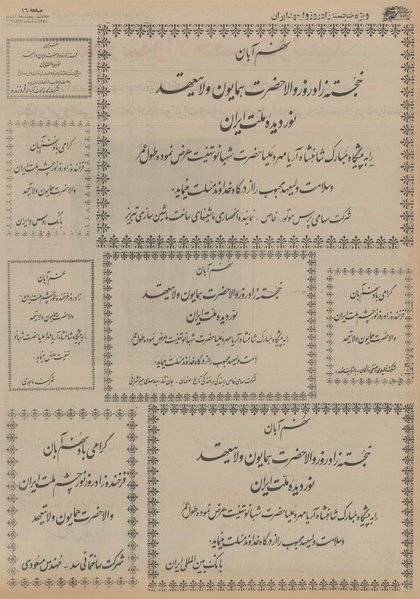 صفحه ۱۶
ویژه خجسته زادروز ولیعهد ایران
نهم آبان
خجسته زادروز والاحضرت همایون ولایتعهد
نور دیده ملت ایران
را به پیشگاه مبارک شاهنشاه آریامهر و علیاحضرت شهبانو تهنیت عرض نموده طول عمر
وسلامت ولیعهد محبوب را از درگاه خداوند مسئلت مینماید.
شرکت سهامی پرس موتور خاص - نماینده انحصاری ماشینهای ساخت ماشین سازی تبریز
گرامی باد نهم آبان
فرخنده زادروز نور چشم ملت ایران
والاحضرت همایون ولایتعهد
نهم آبان
خجسته زادروز والاحضرت همایون ولایتعهد
نور دیده ملت ایران
را به پیشگاه مبارک شاهنشاه آریامهر و علیاحضرت شهبانو تهنیت عرض نموده طول عمر
وسلامت ولیعهد محبوب را از درگاه خداوند مسئلت مینماید.
گرامی باد نهم آبان
فرخنده زادروز نور چشم ملت ایران
والاحضرت همایون ولایتعهد
نهم آبان
زادروز فرخنده نور چشم ملت ایران
والاحضرت همایون ولایتعهد
را به پیشگاه مبارک شاهنشاه آریامهر و علیاحضرت شهبانو
تهنیت عرض مینماید.
نهم آبان
خجسته زادروز والاحضرت همایون ولایتعهد
نور دیده ملت ایران
را به پیشگاه مبارک شاهنشاه آریامهر و علیاحضرت شهبانو تهنیت عرض نموده طول عمر
وسلامت ولیعهد محبوب را از درگاه خداوند مسئلت مینماید.
بانک بین المللی ایران
گرامی باد نهم آبان
فرخنده زادروز نور چشم ملت ایران
والاحضرت همایون ولایتعهد
شرکت ساختمانی سد - مهندس مسعودی